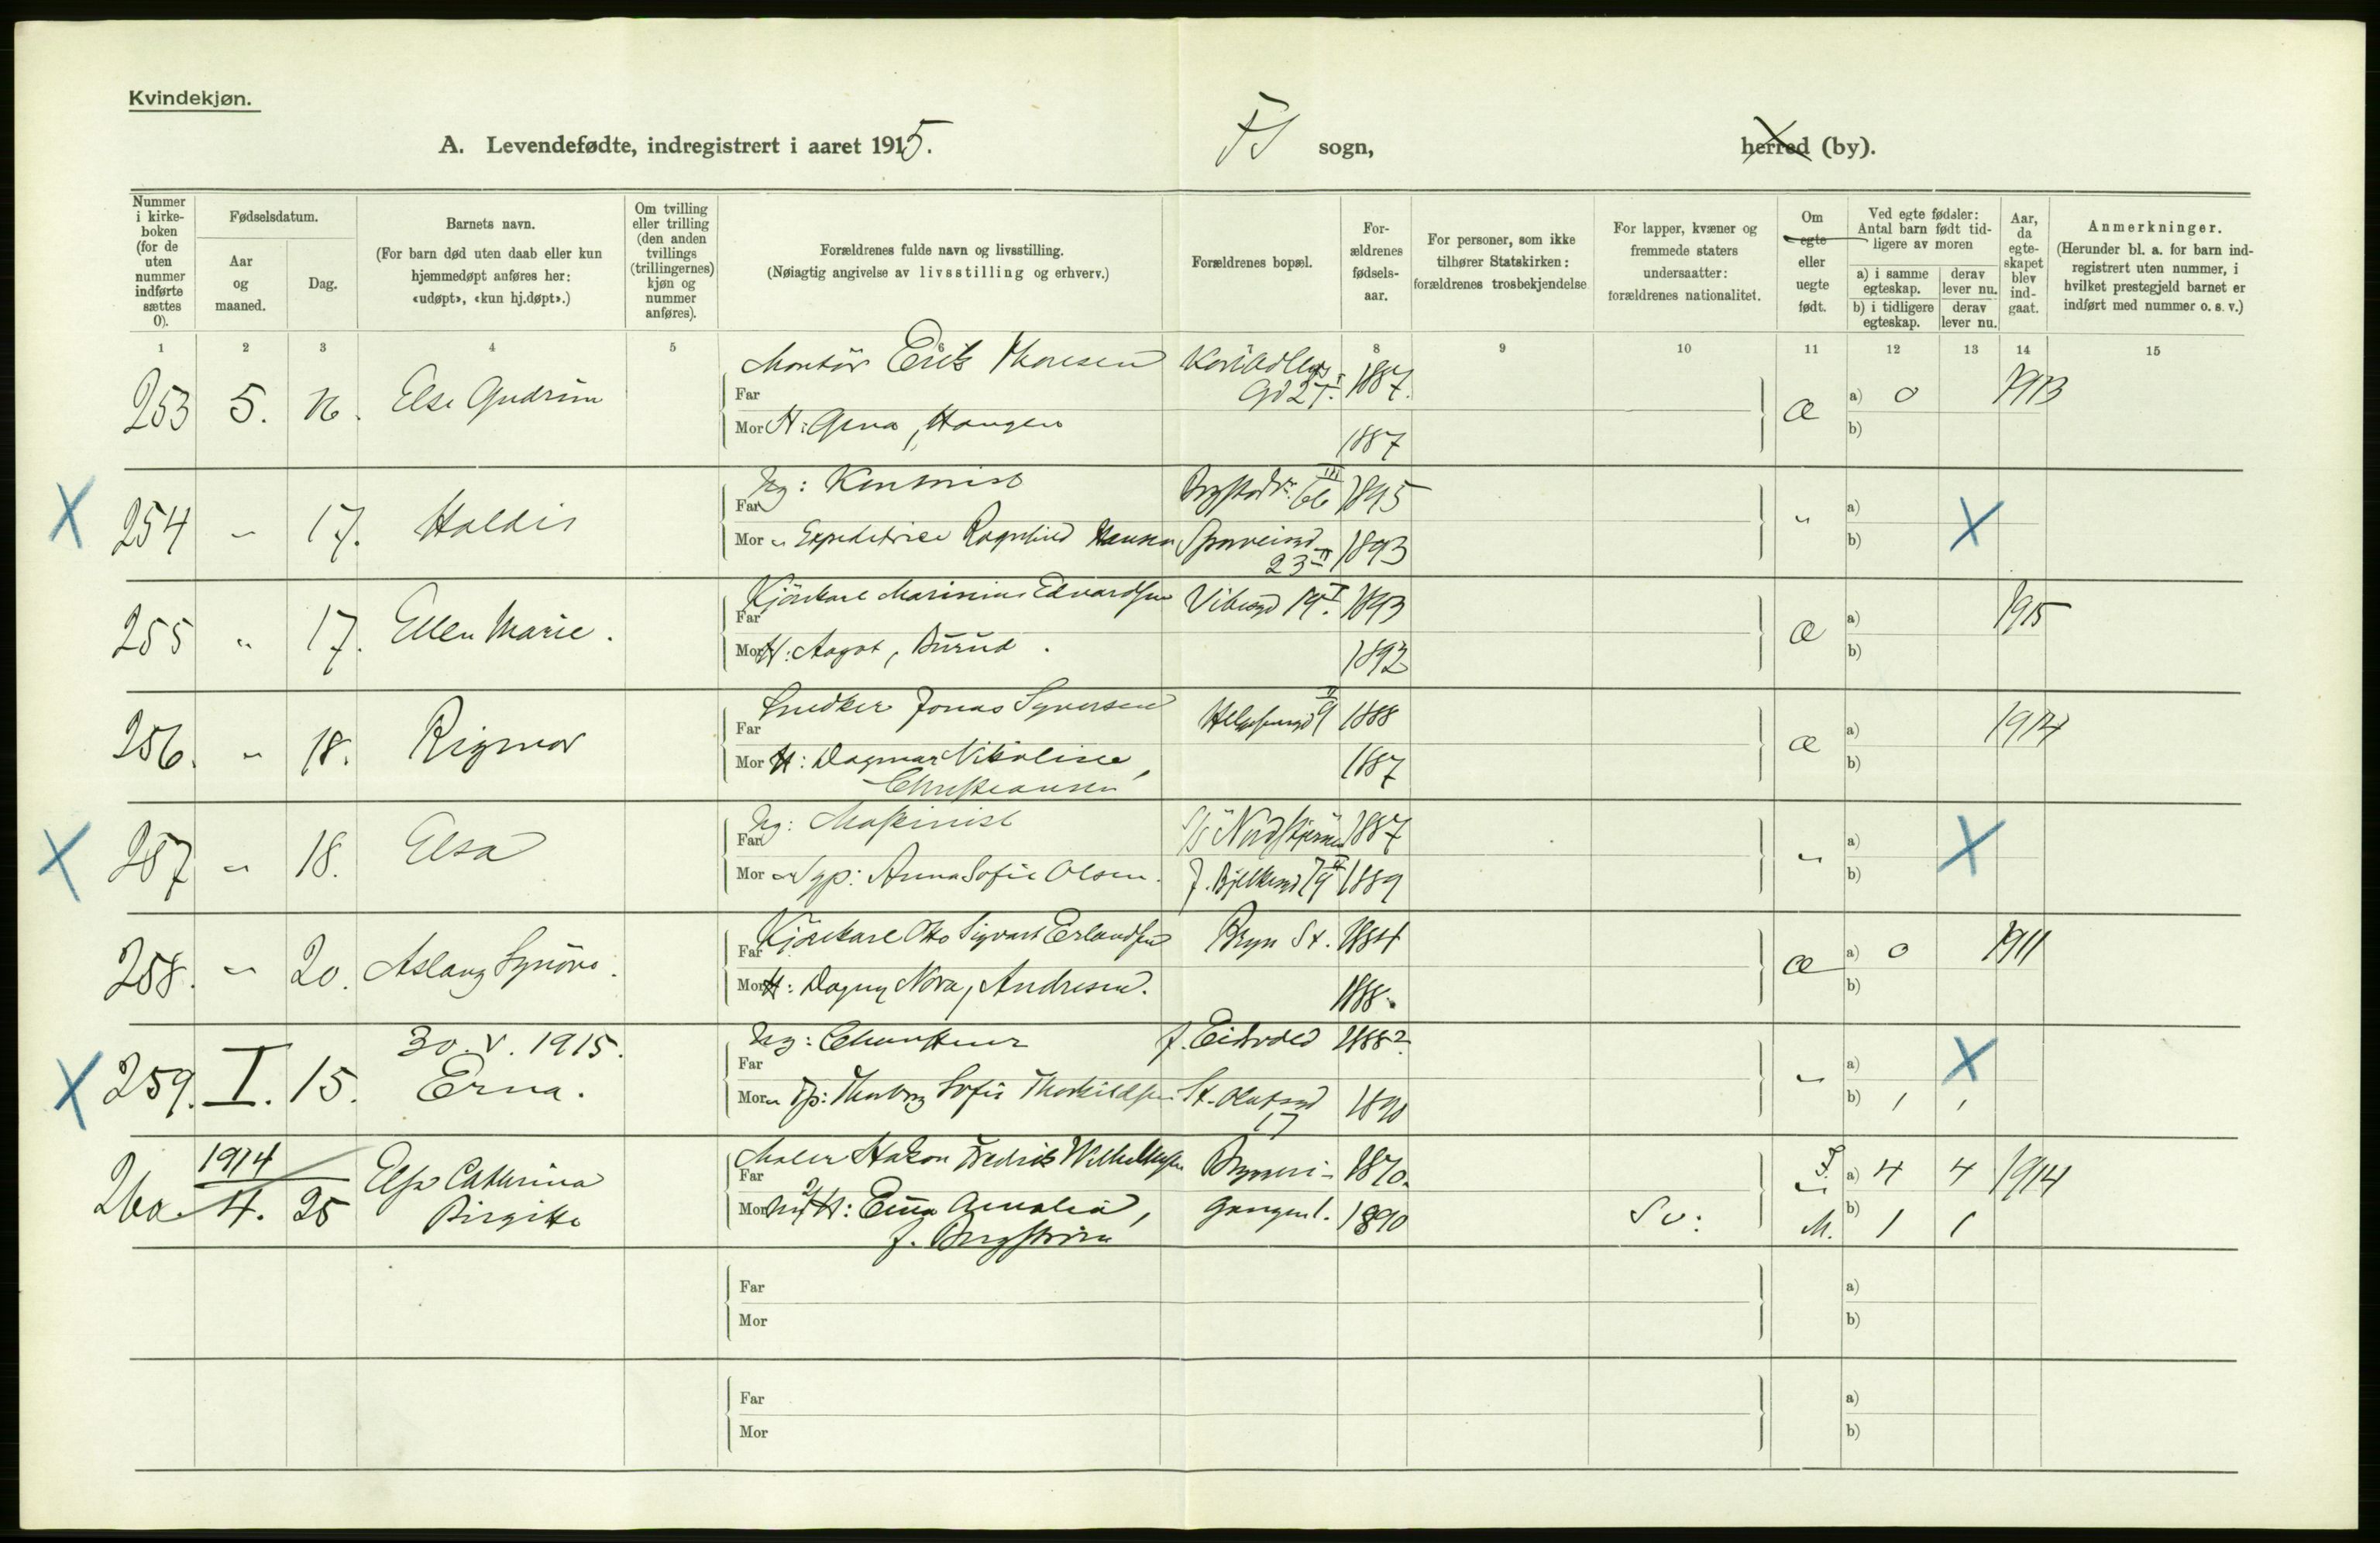 Kvindekjøn.
A. Levendefødte, indregistrert i aaret 1915.
FS sogn,
herred (by).
Nummer i kirke-boken (for de uten nummer indførte sættes 0).
Fødselsdatum.
Aar og maaned.
Dag.
Barnets navn.
(For barn død uten daab eller kun hjemmedøpt anføres her: «udøpt», «kun hj.døpt».)
Om tvilling eller trilling (den anden tvillings (trillingernes) kjøn og nummer anføres).
Forældrenes fulde navn og livsstilling.
(Nøiagtig angivelse av livsstilling og erhverv.)
Forældrenes bopæl.
For-ældrenes fødsels-aar.
For personer, som ikke tilhører Statskirken: forældrenes trosbekjendelse
For lapper, kvæner og fremmede staters undersaatter: forældrenes nationalitet.
Om egte eller uegte født.
Ved egte fødsler: Antal barn født tid-ligere av moren
a) i samme egteskap.
derav lever nu.
b) i tidligere egteskap.
derav lever nu.
Aar, da egte-skapet blev ind-gaat.
Anmerkninger.
(Herunder bl. a. for barn ind-registrert uten nummer, i hvilket prestegjeld barnet er indført med nummer o. s. v.)
1 2 3 4 5 6 7 8 9 10 11 12 13 14 15
253 5. 16. Else Gudrun
Far Montør Erik Thoresen 1887.
Mor H: Gina, Haugen 1887
æ a) 0 1913
b)
X 254 " 17. Haldis
Far Ug: Kontorist 66 III 1895
Mor " Expeditrice Ragnhild Hansen 23 II 1893
" a) b) X
255 " 17. Ellen Marie.
Far Kjørekarl Marinius Edvardsen Vibesgd 19 I. 1893
Mor H: Aagot, Burud. 1892
æ a) b) 1915
256. " 18. Rigmor
Far Snedker Jonas Syversen Helgesensgd 9 II 1888
Mor H: Dagmar Nikoline, Christiansen 1887
æ a) b) 1914
X 257 " 18. Elsa
Far Ug: Maskinist S/S "Nordstjernen" 1887
Mor " Syp: Anna Sofie Olsen. J. Bjelkesgd 79 II 1889
" a) b) X
258. " 20. Aslaug Synøve.
Far Kjørekarl Otto Sigvart Erlandsen Bryn St. 1884
Mor H: Dagny Nora, Andresen. 1888.
æ a) 0 1911
b)
X 259. I. 15. 30. V. 1915. Erna.
Far Ug: f. Eidsvold 1888?
Mor " Tjp: Thorborg Sofie Thorkildsen St. Olafsgd 17 1890
" a) X
b) 1 1
260. 1914 4. 25 Elsa Catharina Birgitte
Far Maler Hakon Fredrik Wilhelmsen Bryneri- 1870.
Mor H: Emma Amalia, f. Bergstrøm gangen 1. 1890
Sv:
F. a) 4 4 1914
M. b) 1 1
Far
Mor
a)
b)
Far
Mor
a)
b)